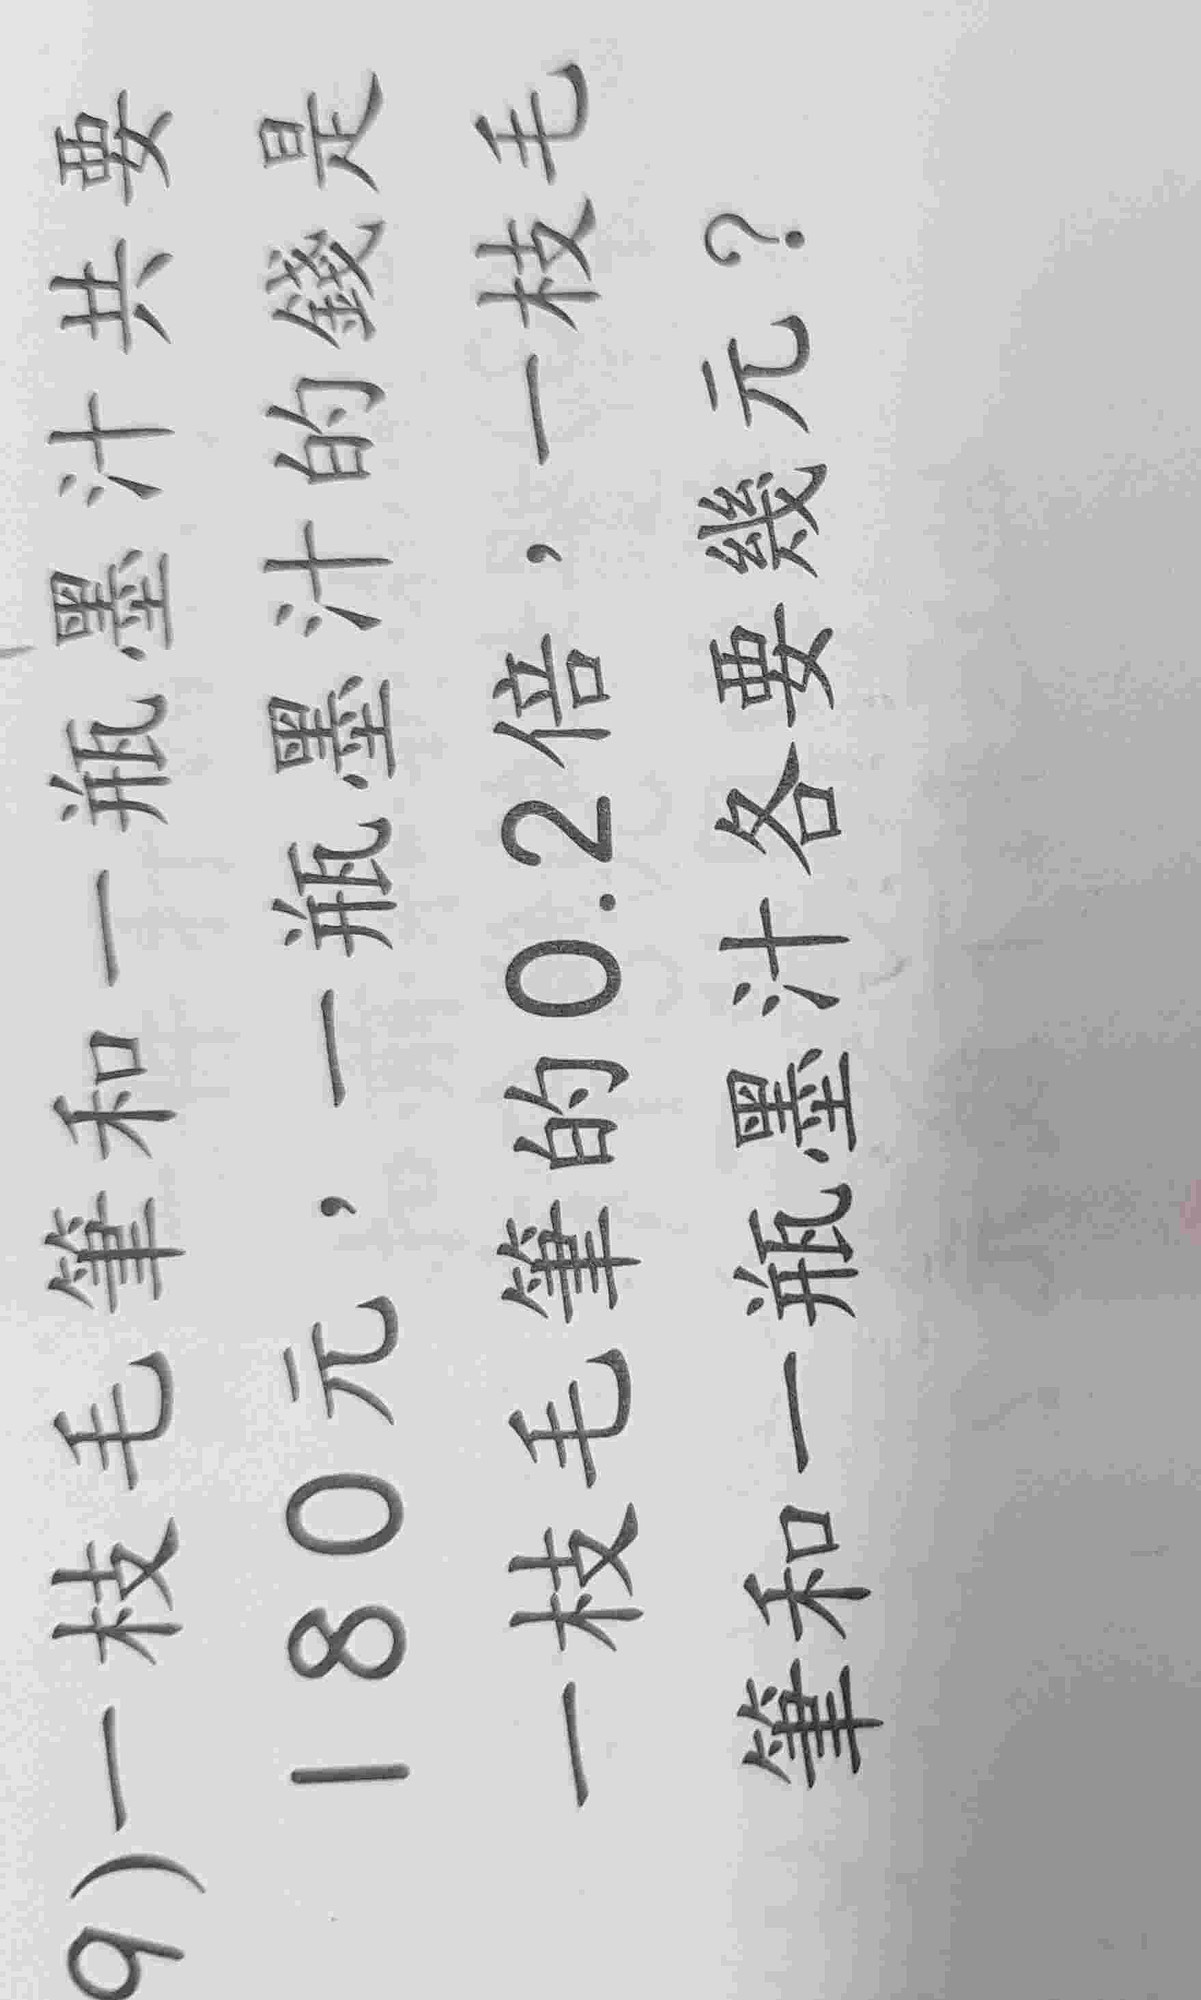 9)一枝毛筆和一瓶墨汁共要
180元，一瓶墨汁的錢是
一枝毛筆的0.2倍，一枝毛
筆和一瓶墨汁各要幾元？